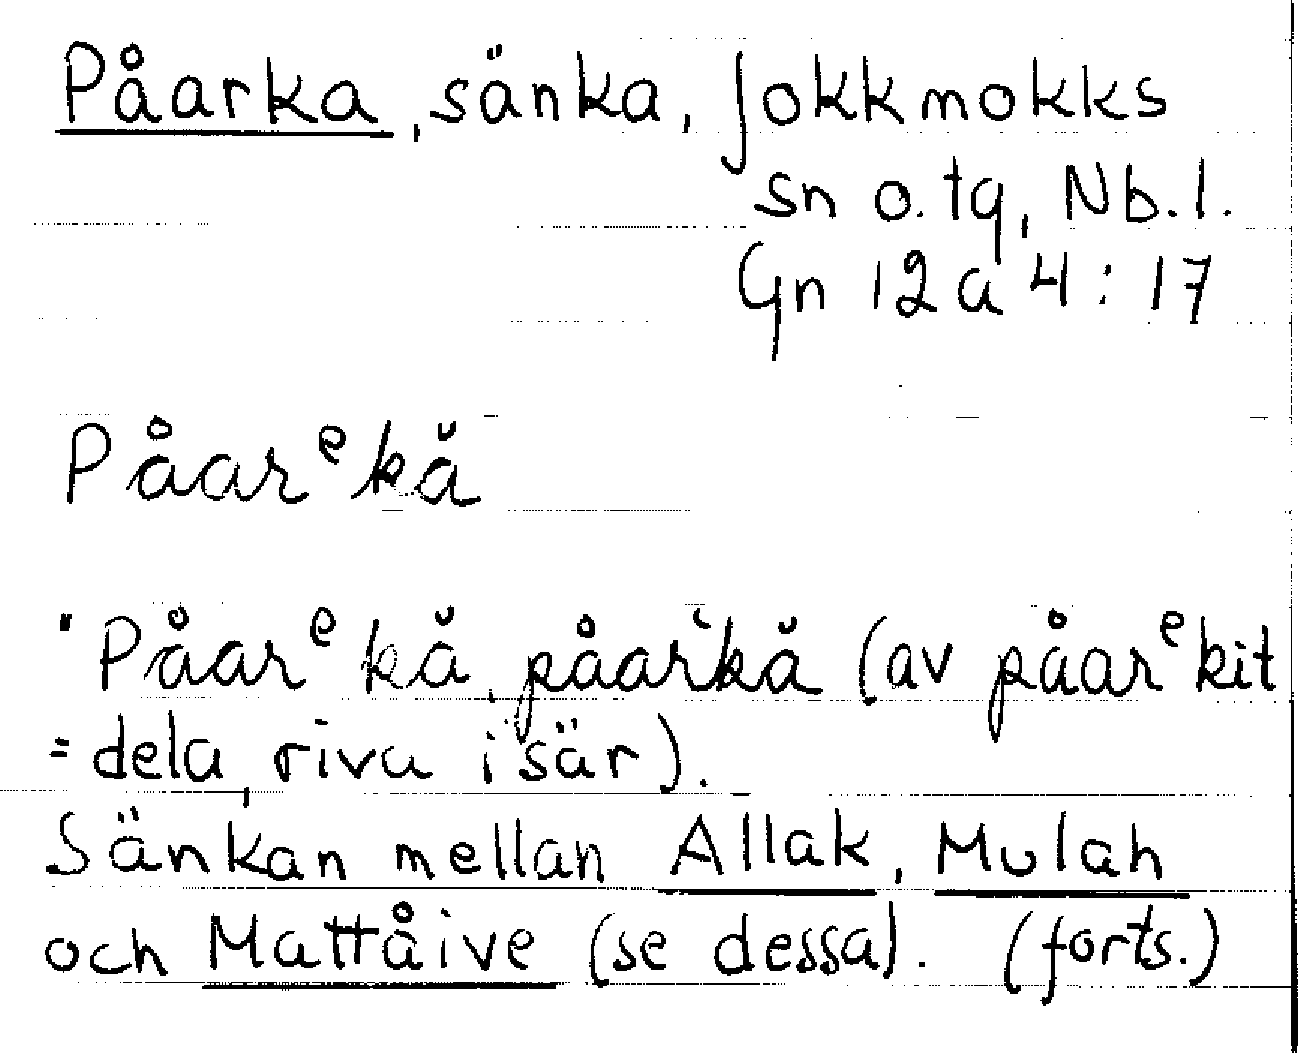 Påarka, sänka, Jokkmokks
sn o. tg, Nb.l.
Gn 12a 4:17
Påarᵉkă
"Påarᵉkă, påar'kă (av påarᵉkit
= dela, riva isär).
Sänkan mellan Allak, Mulah
och Mattåive (se dessa). (forts.)